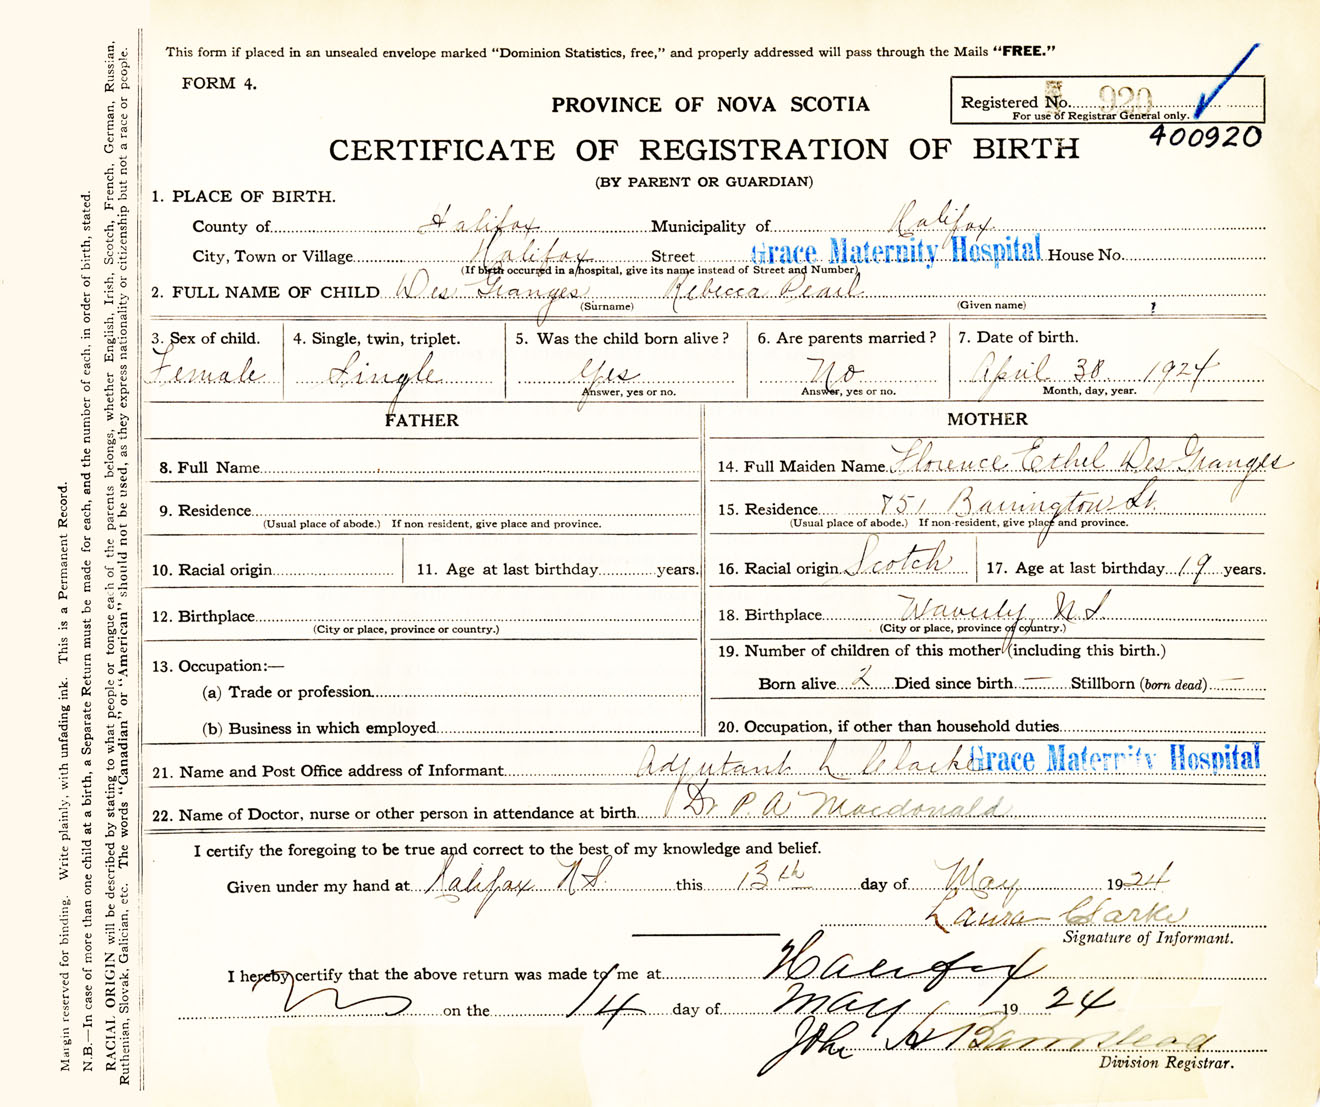 This form if placed in an unsealed envelope marked "Dominion Statistics, free," and properly addressed will pass through the Mails "FREE."
FORM 4.
PROVINCE OF NOVA SCOTIA
Registered No. 920
For use of Registrar General only.
400920
CERTIFICATE OF REGISTRATION OF BIRTH
(BY PARENT OR GUARDIAN)
1. PLACE OF BIRTH.
County of Halifax Municipality of Halifax
City, Town or Village Halifax Street Grace Maternity Hospital House No.
(If birth occurred in a hospital, give its name instead of Street and Number)
2. FULL NAME OF CHILD Des Granges Rebecca Pearl
(Surname) (Given name)
3. Sex of child. 4. Single, twin, triplet. 5. Was the child born alive? 6. Are parents married? 7. Date of birth.
Female Single Yes No April 30 1924
Answer, yes or no. Answer, yes or no. Month, day, year.
FATHER MOTHER
8. Full Name 14. Full Maiden Name Florence Ethel Des Granges
9. Residence 15. Residence 751 Barrington St.
(Usual place of abode.) If non resident, give place and province. (Usual place of abode.) If non-resident, give place and province.
10. Racial origin 11. Age at last birthday years. 16. Racial origin Scotch 17. Age at last birthday 19 years.
12. Birthplace 18. Birthplace Waverly N.S.
(City or place, province or country.) (City or place, province or country.)
13. Occupation:— 19. Number of children of this mother (including this birth.)
(a) Trade or profession Born alive 2 Died since birth — Stillborn (born dead) —
(b) Business in which employed 20. Occupation, if other than household duties
21. Name and Post Office address of Informant Adjutant L Clarke Grace Maternity Hospital
22. Name of Doctor, nurse or other person in attendance at birth Dr P. A Macdonald
I certify the foregoing to be true and correct to the best of my knowledge and belief.
Given under my hand at Halifax N.S. this 13th day of May 1924
Laura Clarke
Signature of Informant.
I hereby certify that the above return was made to me at Halifax
on the 14 day of May 1924
John A Barnstead
Division Registrar.
Margin reserved for binding. Write plainly, with unfading ink. This is a Permanent Record.
N.B.—In case of more than one child at a birth, a Separate Return must be made for each, and the number of each, in order of birth, stated.
RACIAL ORIGIN will be described by stating to what people or tongue each of the parents belongs, whether English, Irish, Scotch, French, German, Russian,
Ruthenian, Slovak, Galician, etc. The words "Canadian" or "American" should not be used, as they express nationality or citizenship but not a race or people.